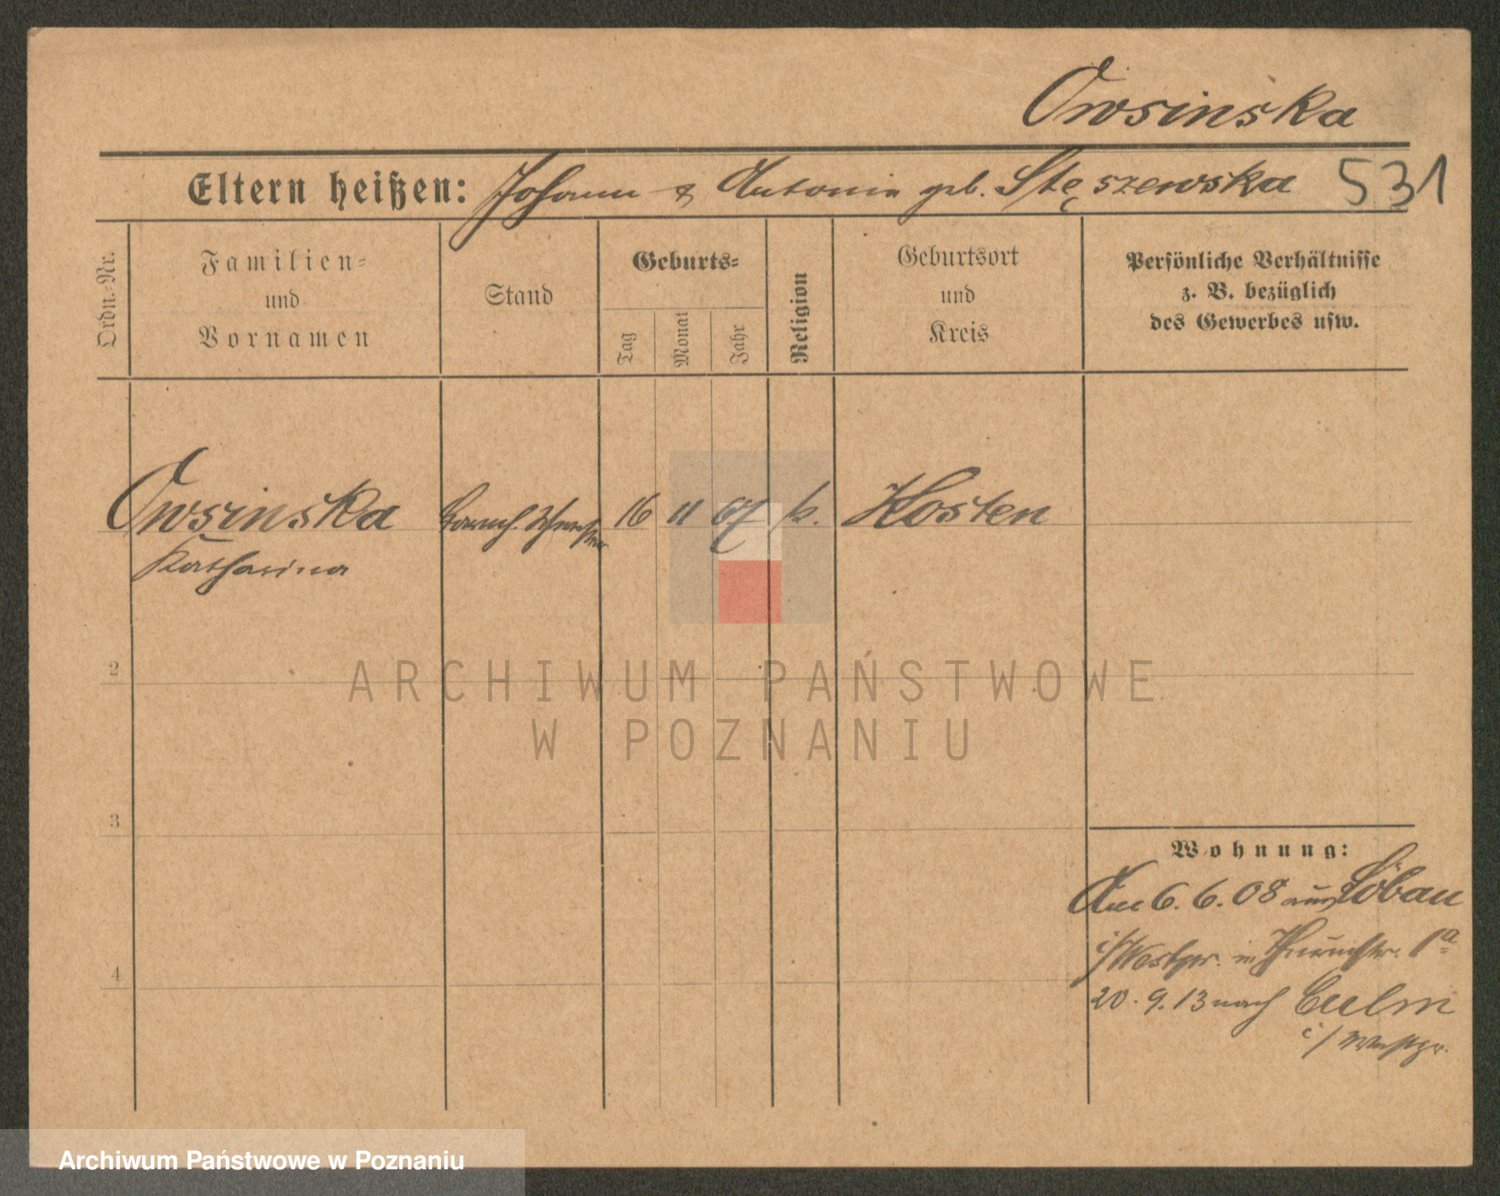 Owsinska
Eltern heißen: Johann & Antonie geb. Stęszewska 531
Ordn.-Nr.
Familien-
und
Vornamen
Stand
Geburts-
Tag
Monat
Jahr
Religion
Geburtsort
und
Kreis
Persönliche Verhältnisse
z. B. bezüglich
des Gewerbes usw.
Owsinska barmh. Schwester 16 11 67 k. Kosten
Katharina
2
3
4
Wohnung:
Am 6.6.08 aus Löbau
i/Westpr. in 1a
20.9.13 nach Culm
i/Westpr.
ARCHIWUM PAŃSTWOWE
W POZNANIU
Archiwum Państwowe w Poznaniu